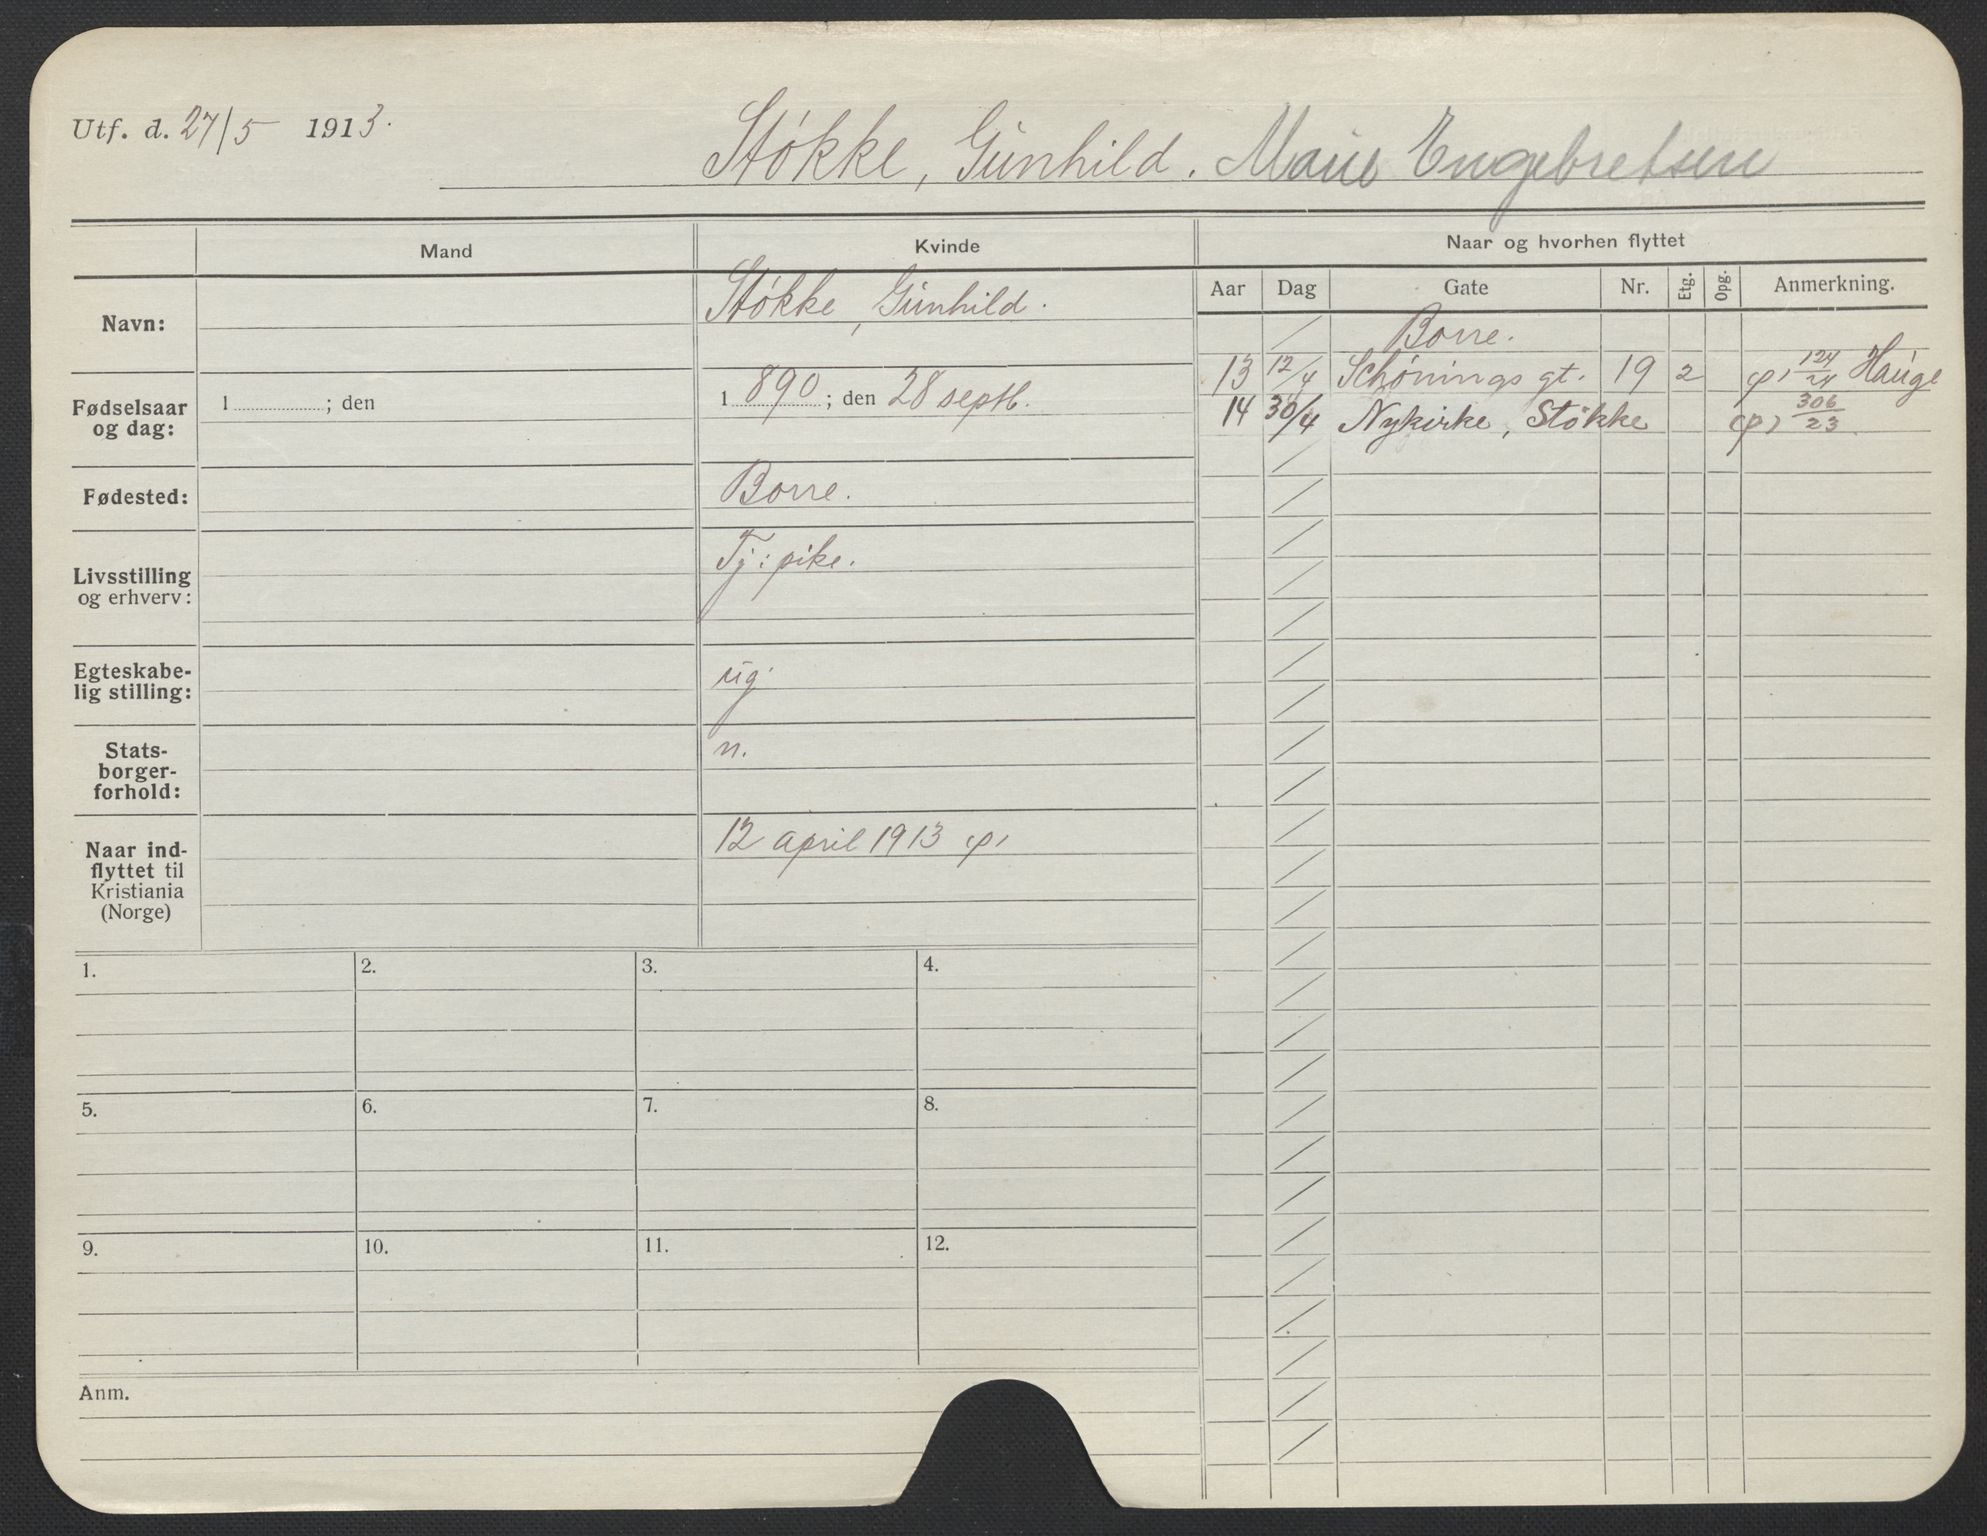 Utf. d. 27/5 1913.
Støkke, Gunhild. Marie Engebretsen
Mand
Kvinde
Naar og hvorhen flyttet
Aar Dag Gate Nr. Etg. Opg. Anmerkning.
Navn: Støkke, Gunhild.
Fødselsaar og dag: 1 ; den
1890; den 28 septb.
Fødested: Borre.
Livsstilling og erhverv: Tj: pike.
Egteskabe-
lig stilling: ug.
Stats-
borger-
forhold: n.
Naar ind-
flyttet til
Kristiania
(Norge)
12 april 1913
Borre.
13 12/4 Schønings gt. 19 2 124/24 Hauge
14 30/4 Nykirke, Støkke 306/23
1. 2. 3. 4.
5. 6. 7. 8.
9. 10. 11. 12.
Anm.